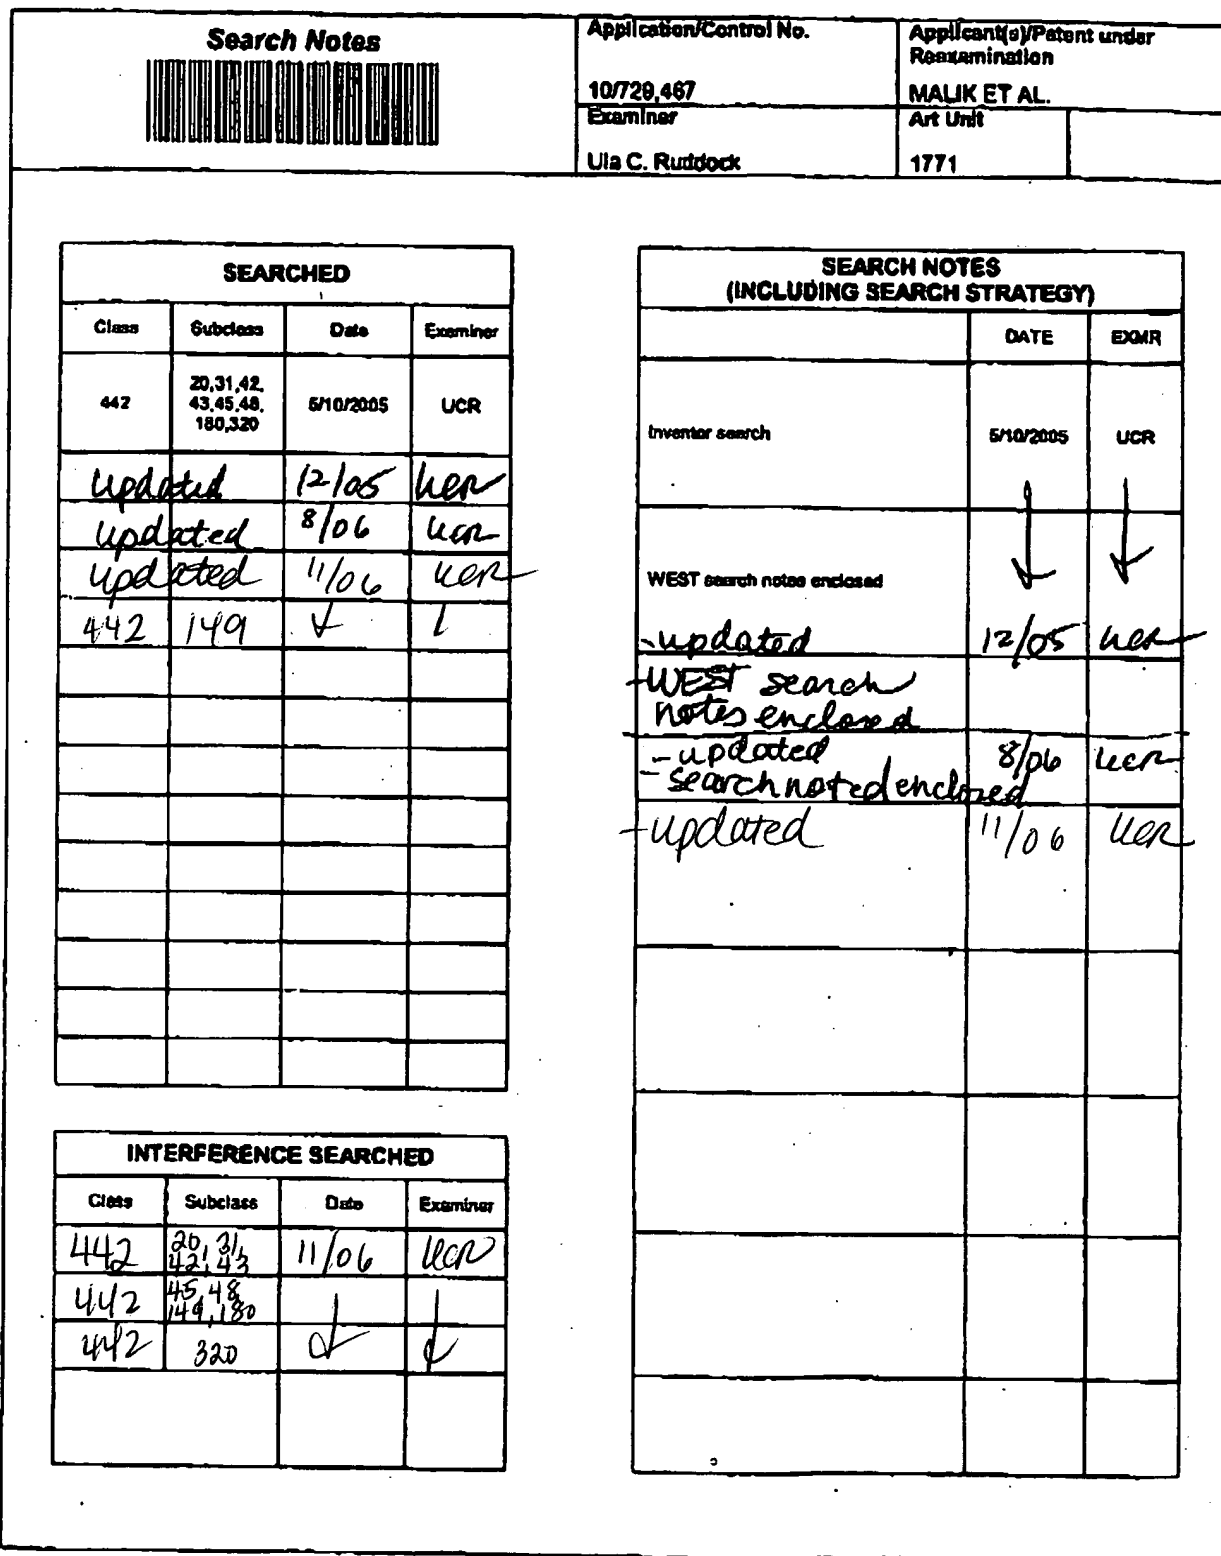 Search Notes
Application/Control No.
10/729,467
Applicant(s)/Patent under
Reexamination
MALIK ET AL.
Examiner
Ula C. Ruddock
Art Unit
1771
SEARCHED
Class Subclass Date Examiner
442 20,31,42, 5/10/2005 UCR
43,45,48,
180,320
updated 12/05 UCR
updated 8/06 UCR
updated 11/06 UCR
442 149
INTERFERENCE SEARCHED
Class Subclass Date Examiner
442 20, 31, 11/06 UCR
42, 43
442 45, 48,
149, 180
442 320
SEARCH NOTES
(INCLUDING SEARCH STRATEGY)
DATE EXMR
Inventor search 5/10/2005 UCR
WEST search notes enclosed
-updated 12/05 UCR
-WEST search
notes enclosed
-updated 8/06 UCR
-search noted enclosed
-updated 11/06 UCR